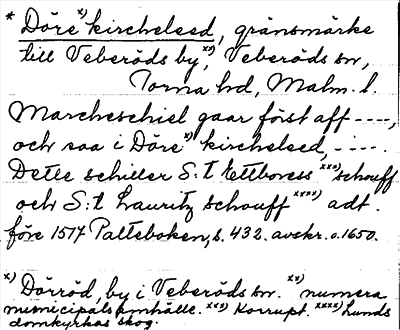 * Döre x) kircheleed, gränsmärke
till Veberöds by, xx) Veberöds sn,
Torna hd, Malm. l.
Marcheschiel gaar först aff ----,
och saa i Döre x) kircheleed, ----.
Dette schiller S:t Ettboress xxx) schouff
och S:t Lauritz schouff xxxx) adt.
före 1577 Palteboken, s. 432. avskr. o. 1650.
x) Dörröd, by i Veberöds sn. xx) numera
municipalsamhälle. xxx) Korrupt. xxxx) Lunds
domkyrkas skog.